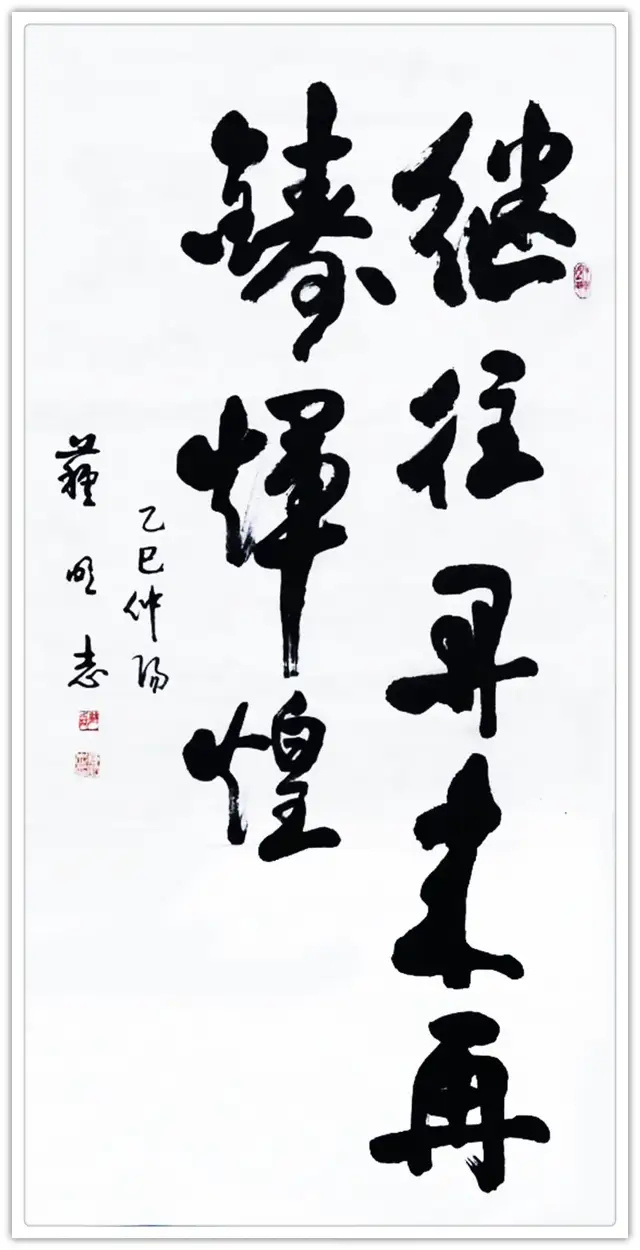 继往开来再
铸煇煌
乙巳仲阳
蘓明志